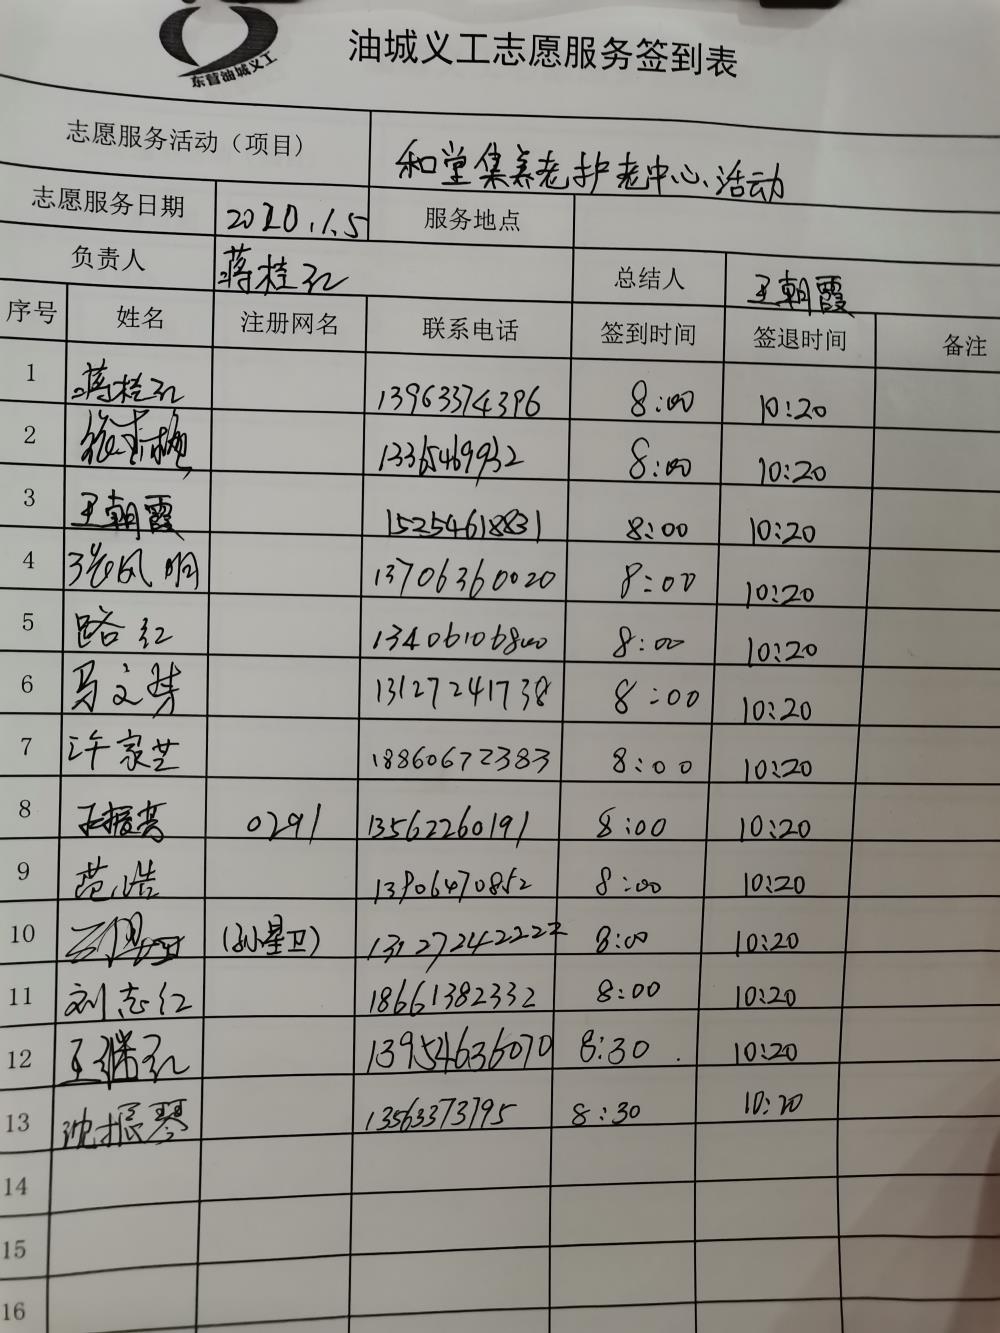 东营油城义工
油城义工志愿服务签到表
志愿服务活动（项目） 和堂集养老护老中心、活动
志愿服务日期 2020.1.5 服务地点
负责人 蒋桂红 总结人 王朝霞
序号 姓名 注册网名 联系电话 签到时间 签退时间 备注
1 蒋桂红 13963374396 8:00 10:20
2 8:00 10:20
3 王朝霞 15254618831 8:00 10:20
4 13706360020 8:00 10:20
5 路红 13406106800 8:00 10:20
6 马文梦 13127241738 8:00 10:20
7 许家芝 18860672383 8:00 10:20
8 0291 13562260191 8:00 10:20
9 范浩 13906470852 8:00 10:20
10 (孙星卫) 13127242222 8:00 10:20
11 刘志红 18661382332 8:00 10:20
12 王继红 13954636070 8:30 10:20
13 沈振琴 13563373795 8:30 10:20
14
15
16